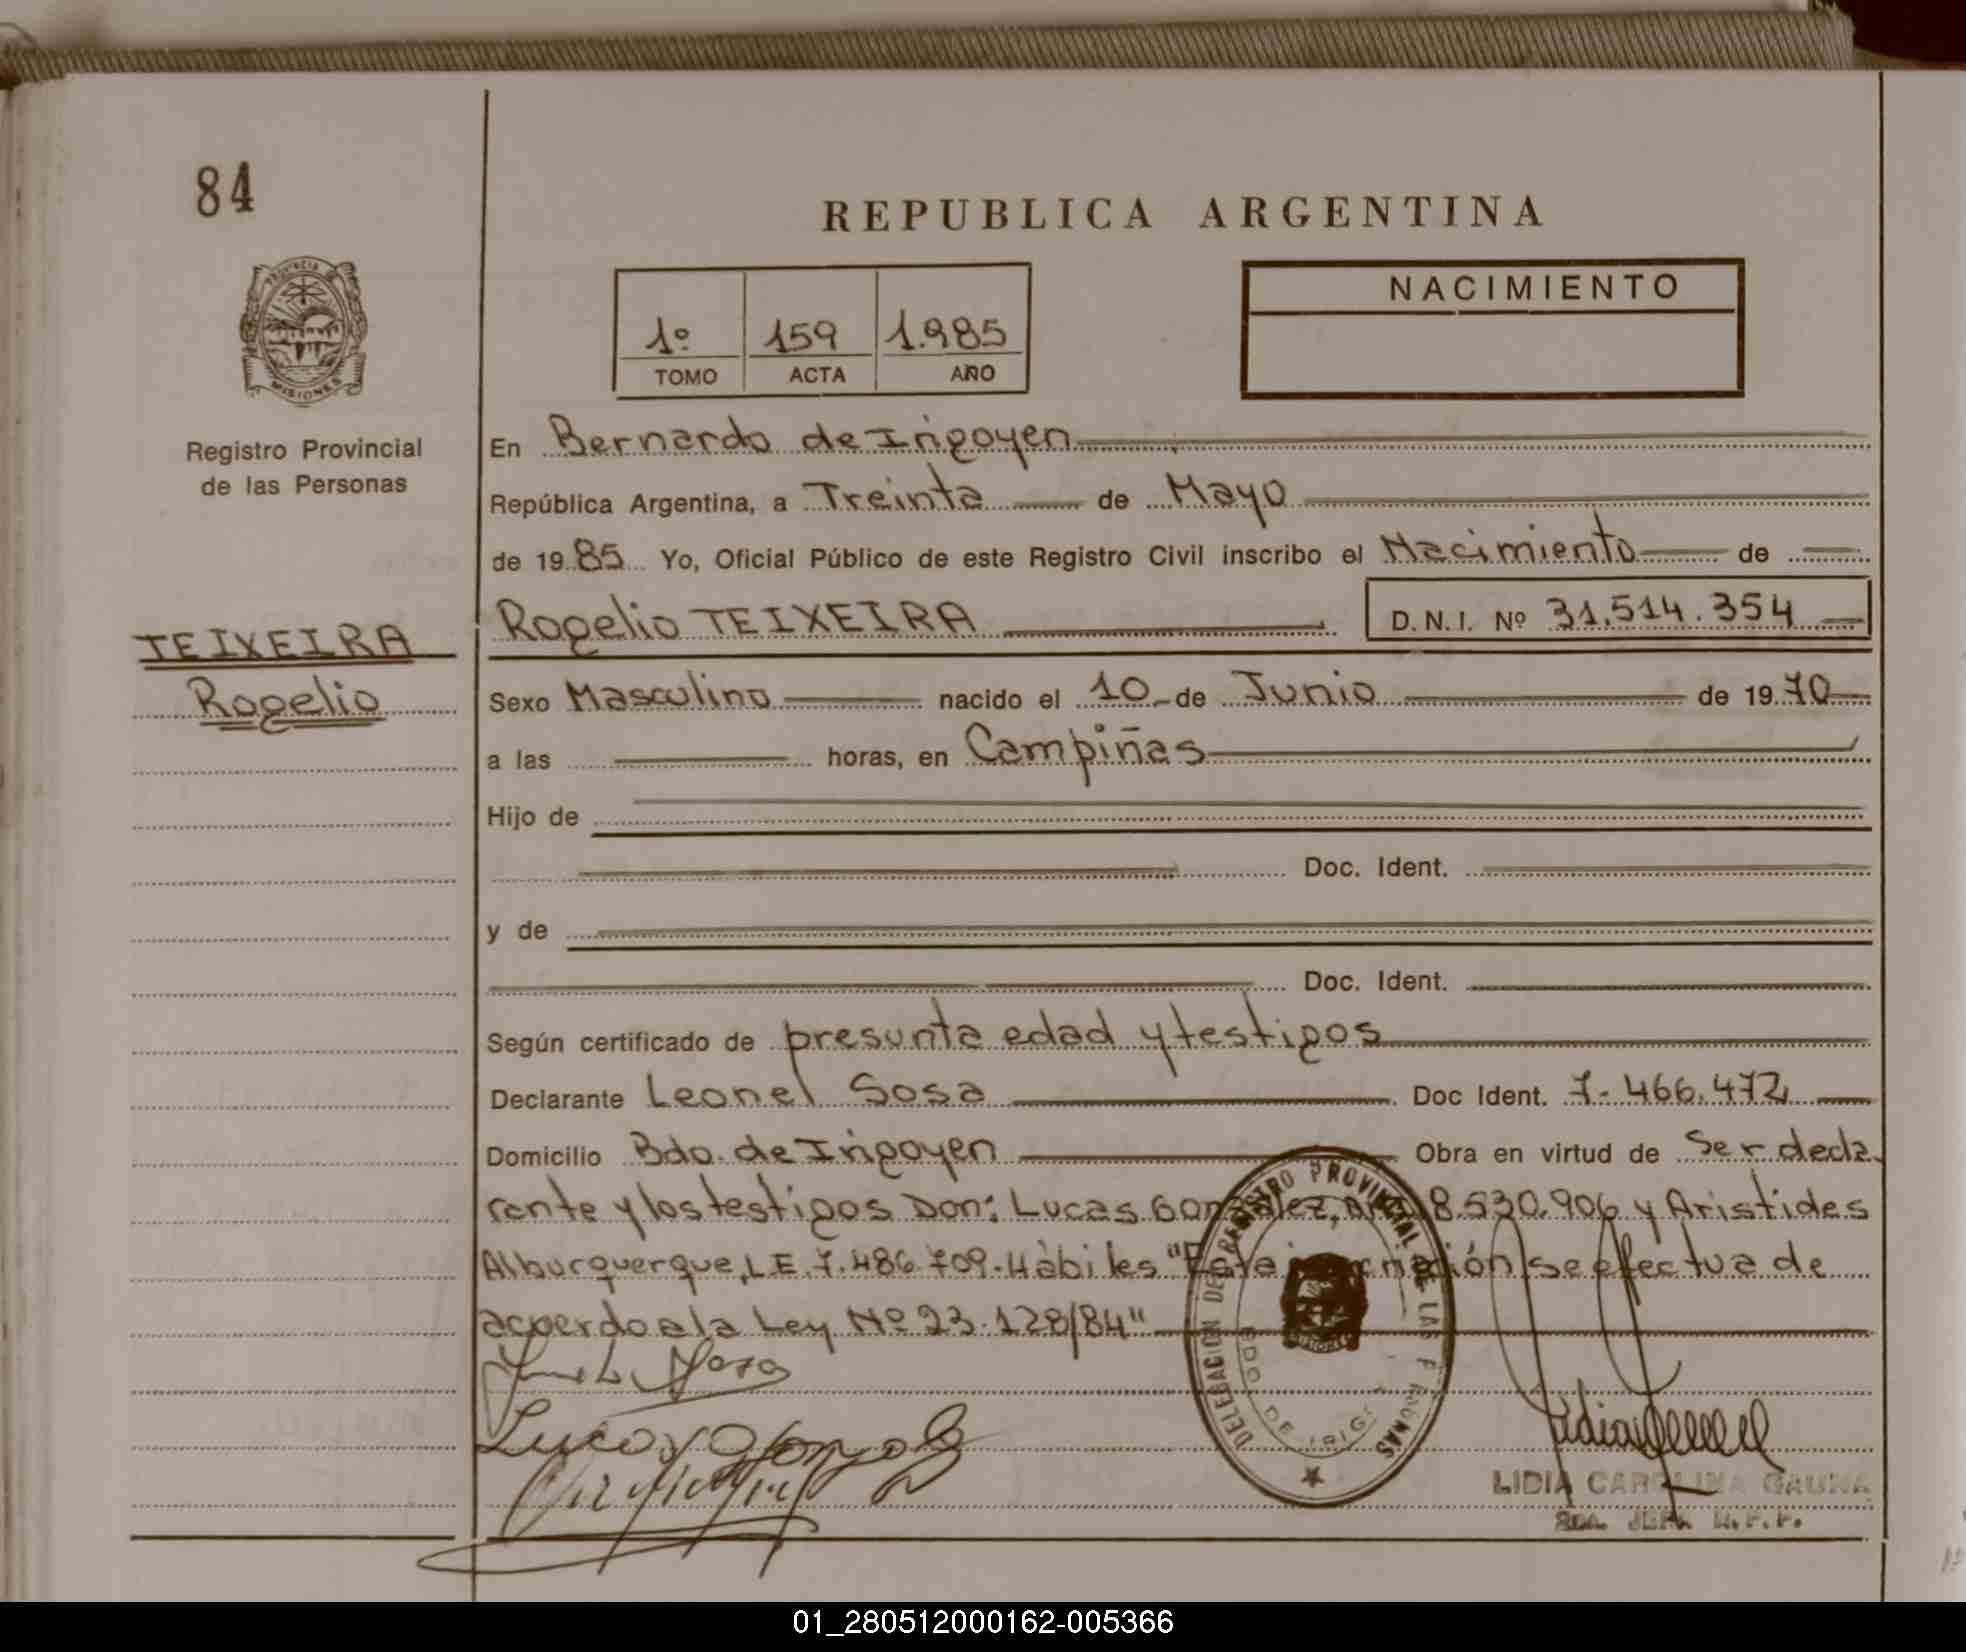 84
REPUBLICA ARGENTINA
PROVINCIA DE
MISIONES
Registro Provincial
de las Personas
1º 159 1.985
TOMO ACTA AÑO
NACIMIENTO
En Bernardo de Irigoyen
República Argentina, a Treinta de Mayo
de 19 85 Yo, Oficial Público de este Registro Civil inscribo el Nacimiento de
TEIXEIRA
Rogelio
Rogelio TEIXEIRA D.N.I. Nº 31.514.354
Sexo Masculino nacido el 10 de Junio de 19 70
a las horas, en Campiñas
Hijo de
Doc. Ident.
y de
Doc. Ident.
Según certificado de presunta edad y testigos
Declarante Leonel Sosa Doc Ident. 7.466.472
Domicilio Bdo. de Irigoyen Obra en virtud de Ser decla
rante y los testigos Don: Lucas Gonzalez, 8.530.906 y Aristides
Alburquerque, L.E. 7.486.709. Hàbiles "Esta se efectua de
acuerdo a la Ley Nº 23.128/84"
DELEGACION DEL REGISTRO PROVINCIAL DE LAS PERSONAS
BDO. DE IRIG
Lucas Gonzalez
LIDIA CAROLINA GAUNA
01_280512000162-005366